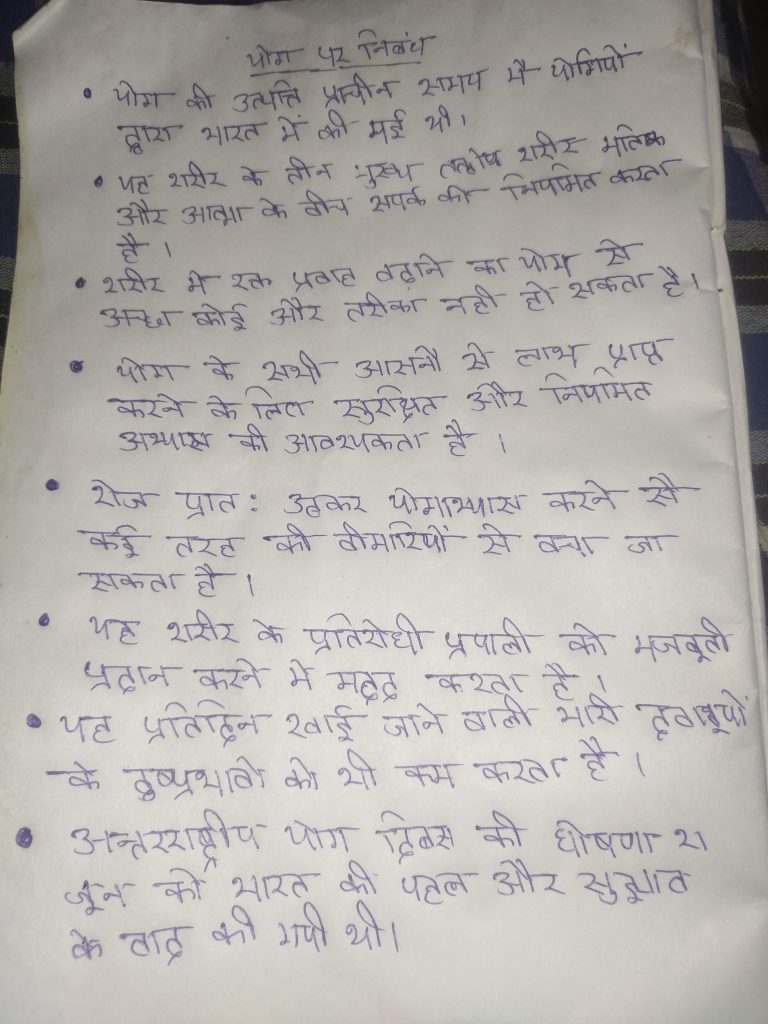 योग पर निबंध
• योग की उत्पत्ति प्राचीन समय मे योगियों
द्वारा भारत में की गई थी।
• यह शरीर के तीन मुख्य शरीर मतिष्क
और आत्मा के बीच सपर्क को नियमित करता
है।
• शरीर मे रक्त प्रवाह बढ़ाने का योग से
अच्छा कोई और तरीका नही हो सकता है।
• योग के सभी आसनों से लाभ प्राप्त
करने के लिए सुरक्षित और नियमित
अभ्यास की आवश्यकता है ।
• रोज प्रात: उठकर योगाभ्यास करने से
कई तरह की बीमारियों से बचा जा
सकता है ।
• यह शरीर के प्रतिरोधी प्रणाली को मजबूती
प्रदान करने मे मदद करता है ।
• यह प्रतिदिन खाई जाने वाली भारी दवाइयों
के दुष्प्रभावो को भी कम करता है ।
• अन्तरराष्ट्रीय योग दिवस की घोषणा २१
जून को भारत की पहल और सुझाव
के बाद की गयी थी।